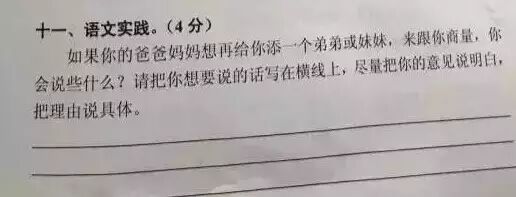 十一、语文实践。（4 分）
如果你的爸爸妈妈想再给你添一个弟弟或妹妹，来跟你商量，你
会说些什么？请把你想要说的话写在横线上，尽量把你的意见说明白，
把理由说具体。